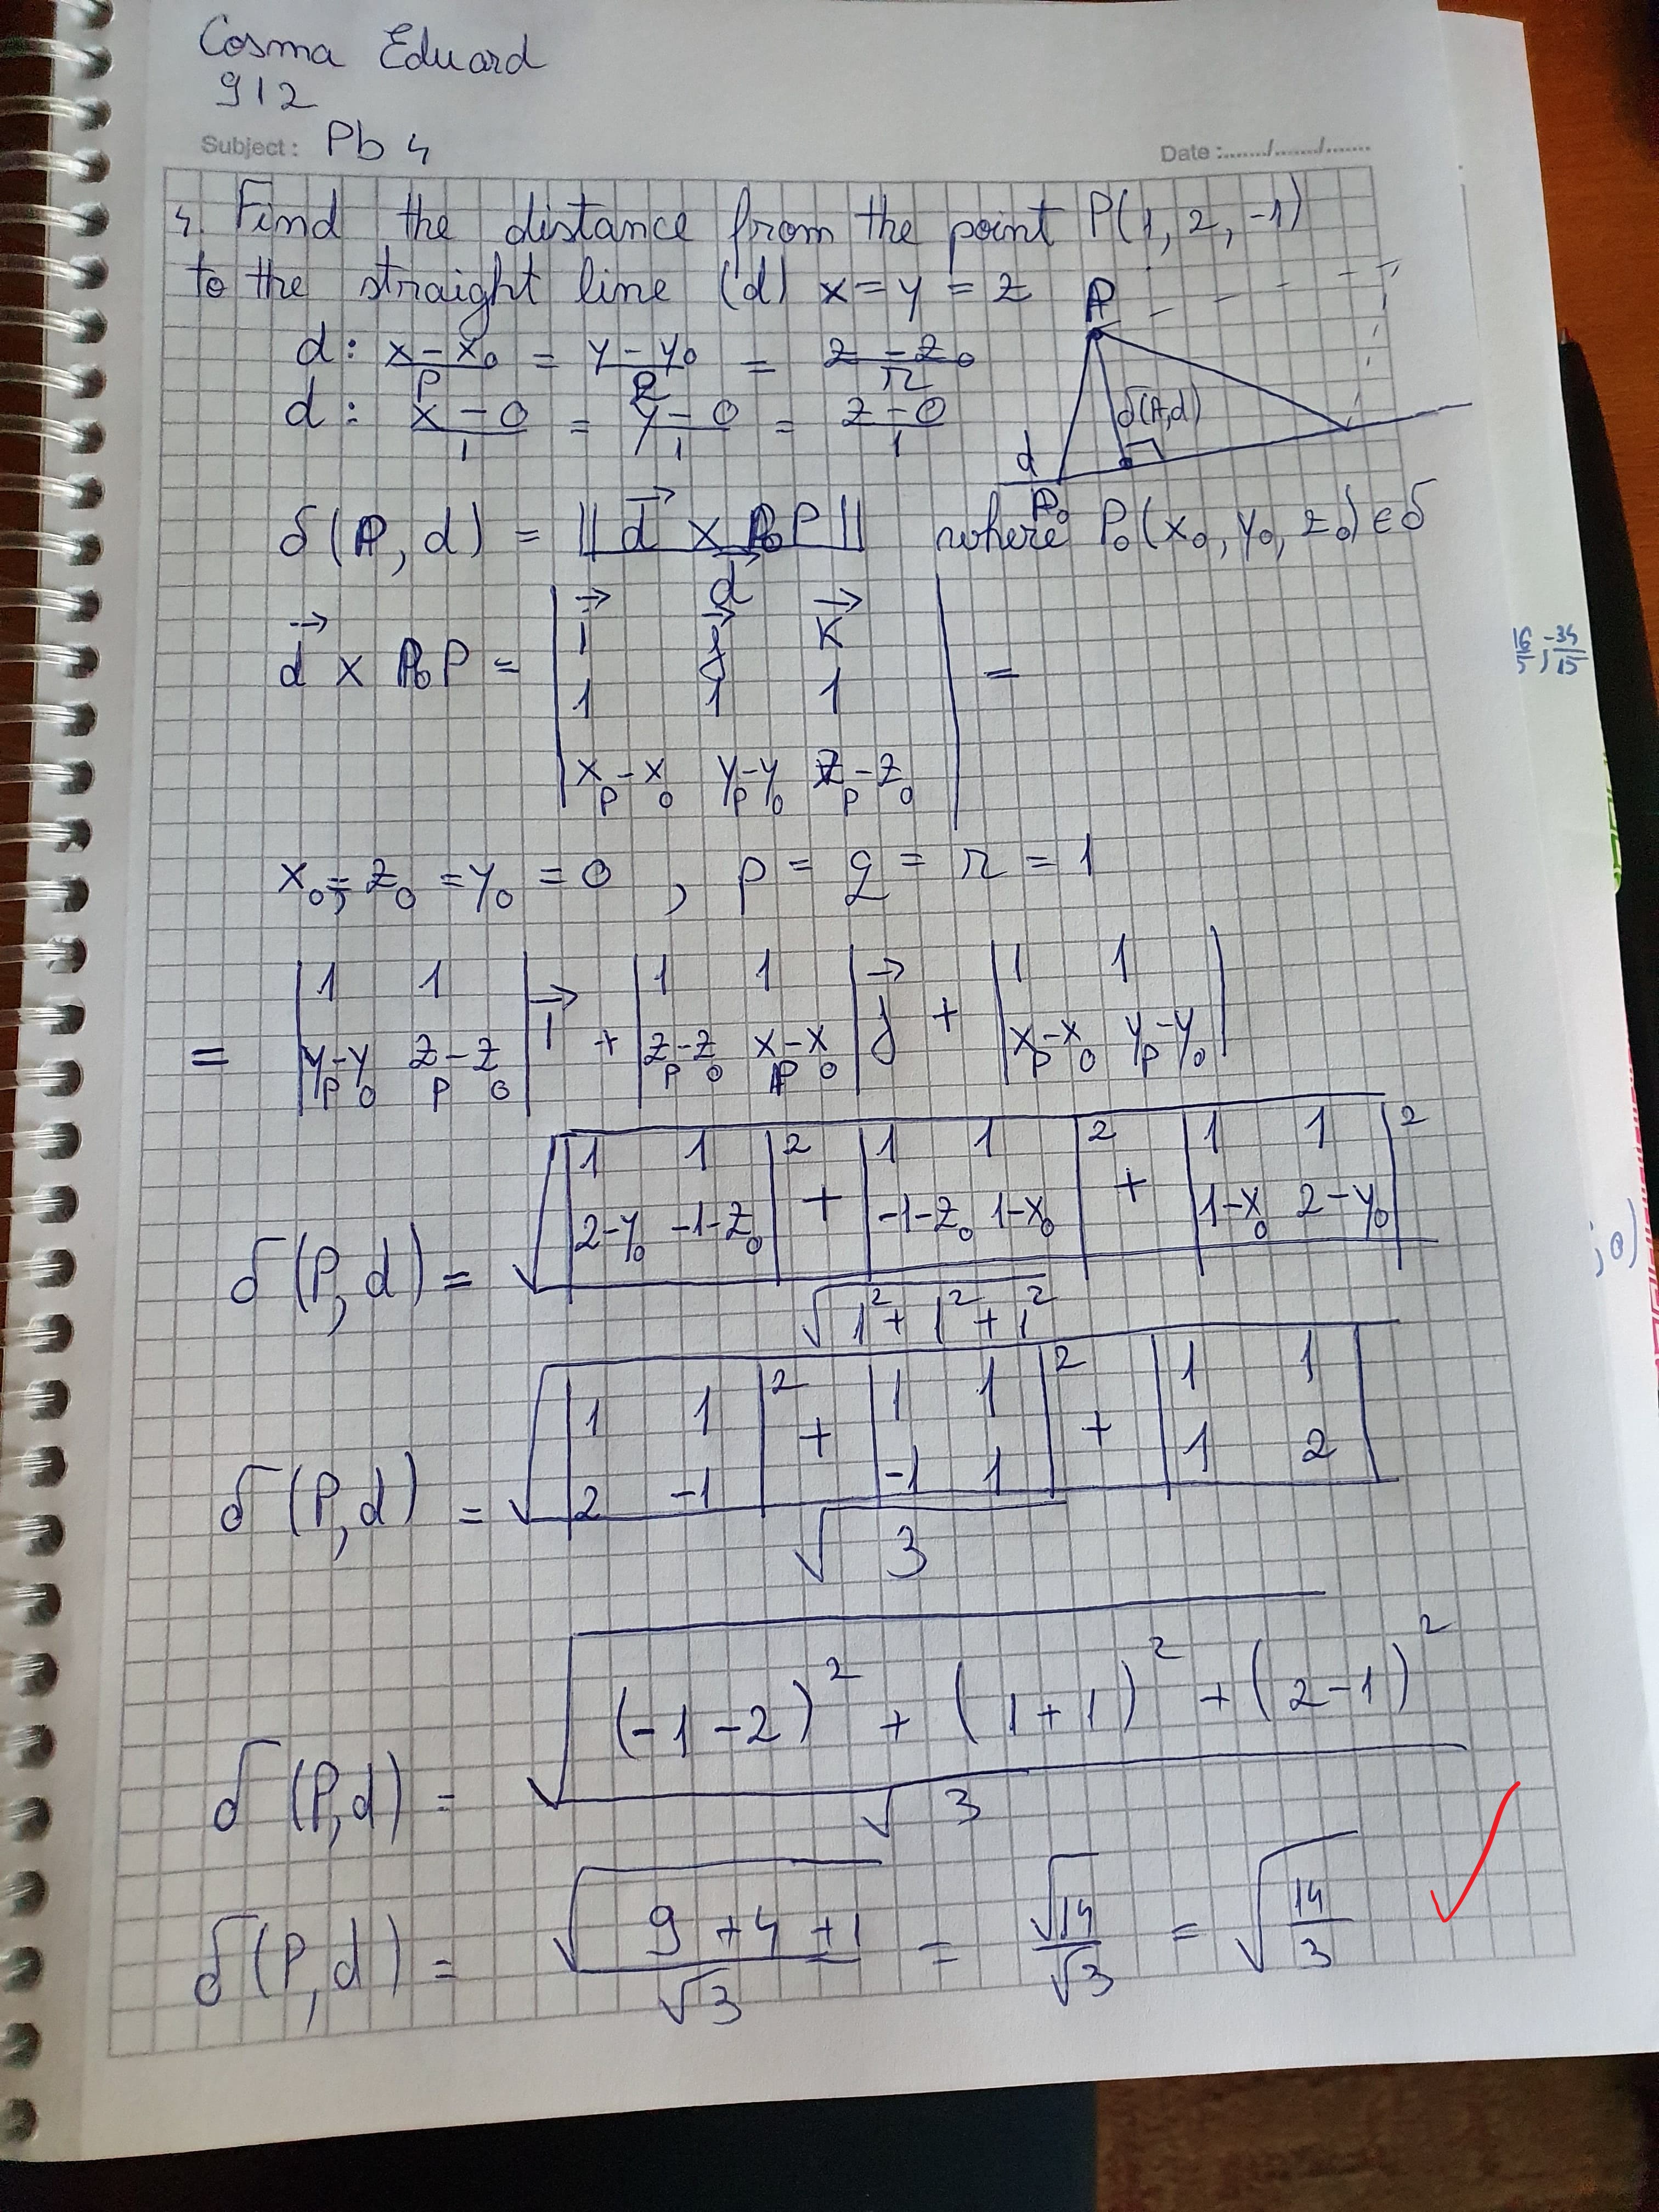 Cosma Eduard
912
Subject: Pb 4
Date:......./......./.......
4. Find the distance from the point P(1, 2, -1)
to the straight line (d) x = y = z
P
d: (x - x₀)/p = (y - y₀)/q = (z - z₀)/r
d: (x - 0)/1 = (y - 0)/1 = (z - 0)/1
δ(P,d)
d
P₀
δ(P, d) = ||d⃗ × P₀P|| / d⃗ where P₀(x₀, y₀, z₀) ∈ δ
d⃗ × P₀P = | i⃗ j⃗ k⃗ |
| 1 1 1 | =
| x_P - x₀ y_P - y₀ z_P - z₀ |
x₀ = z₀ = y₀ = 0 , p = q = r = 1
= | 1 1 ; y_P - y₀ z_P - z₀ | i⃗ + | 1 1 ; z_P - z₀ x_P - x₀ | j⃗ + | 1 1 ; x_P - x₀ y_P - y₀ |
δ(P, d) = √( | 1 1 ; 2 - y₀ -1 - z₀ |² + | 1 1 ; -1 - z₀ 1 - x₀ |² + | 1 1 ; 1 - x₀ 2 - y₀ |² ) / √(1² + 1² + 1²)
δ(P, d) = √( | 1 1 ; 2 -1 |² + | 1 1 ; -1 1 |² + | 1 1 ; 1 2 | ) / √3
δ(P, d) = √( (-1 - 2)² + (1 + 1)² + (2 - 1)² ) / √3
δ(P, d) = √(9 + 4 + 1) / √3 = √14 / √3 = √(14/3)
16/5 ; -34/15
; 0)